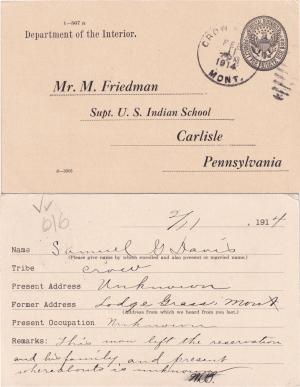 1-867 a
Department of the Interior.
CROW
FEB
1914
MONT.
Mr. M. Friedman
Supt. U. S. Indian School
Carlisle
Pennsylvania
616
2/11, 1914
Name Samuel G Davis
(Please give name by which enrolled and also present or married name.)
Tribe Crow
Present Address Unknown
Former Address Lodge Grass, Mont
(Address from which we heard from you last.)
Present Occupation Unknown
Remarks: This man left the reservation
and his family, and present
whereabouts is unknown